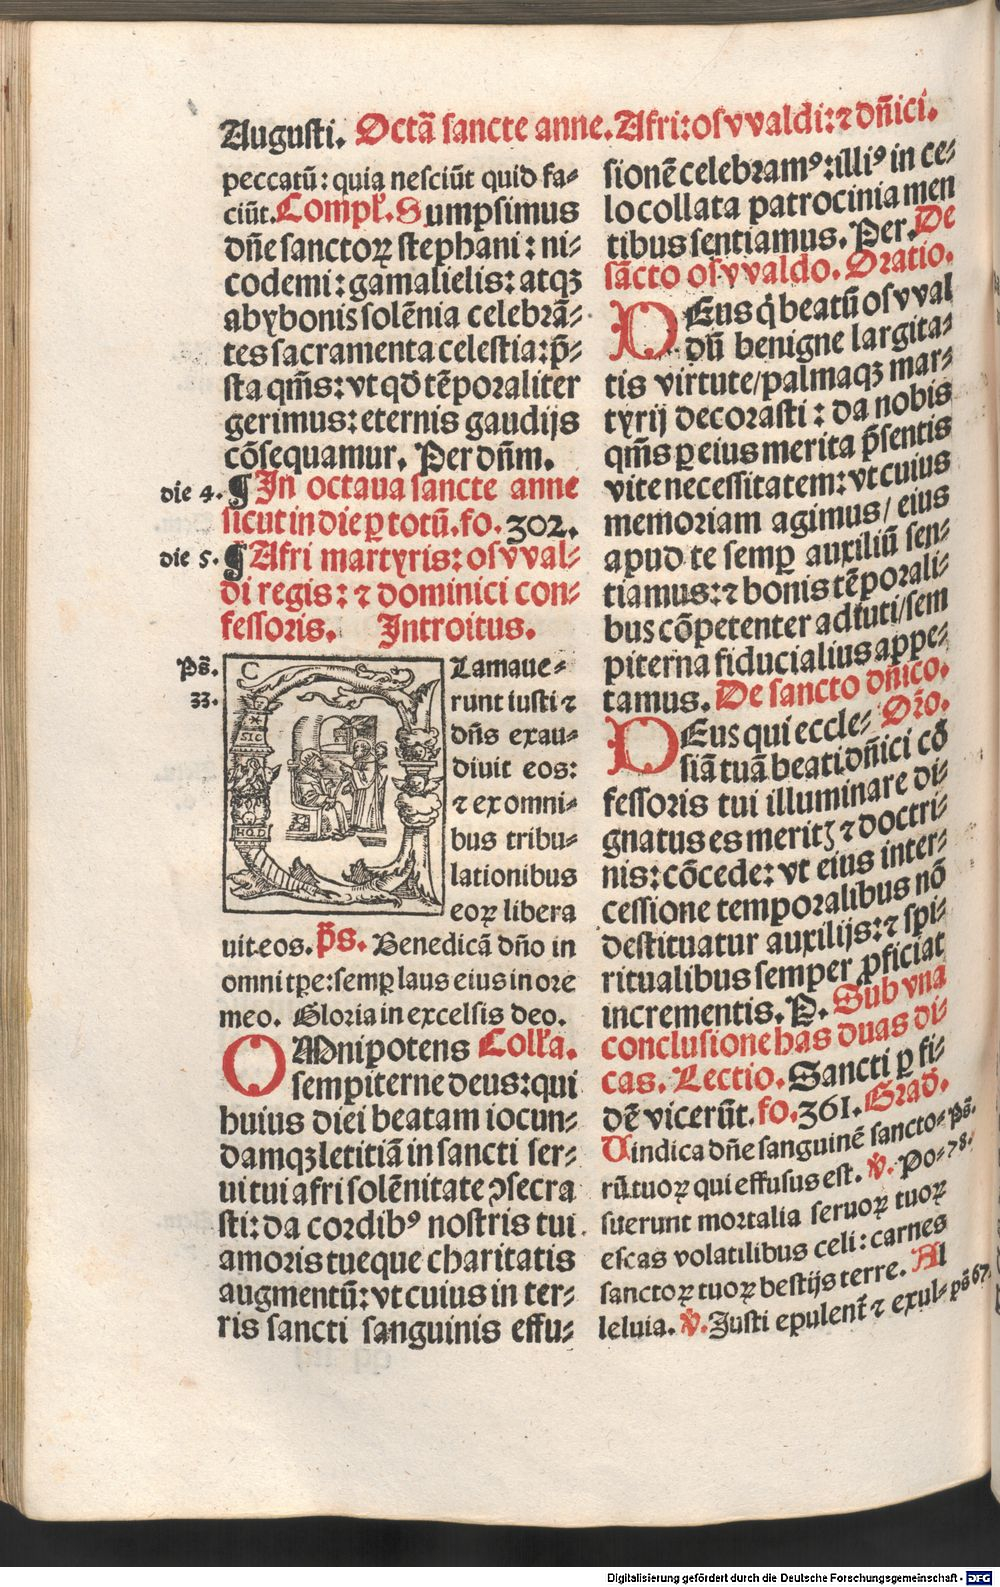 Augusti. Octã sancte anne. Afri: osvvaldi: ⁊ dñici.
peccatũ: quia nesciũt quid fa⸗
ciũt. Comp̃l. Sumpsimus
dñe sanctoꝝ stephani: ni⸗
codemi: gamalielis: atqꝫ
abybonis solẽnia celebrã⸗
tes sacramenta celestia: p̃⸗
sta qm̃s: vt qđ tẽporaliter
gerimus: eternis gaudijs
cõsequamur. Per dñm.
die 4. ¶ In octaua sancte anne
sicut in die ꝑ totũ. fo. 302.
die 5. ¶ Afri martyris: osvval⸗
di regis: ⁊ dominici con⸗
fessoris. Introitus.
Ps̃. 33.
C
SIC
HOD
Lamaue⸗
runt iusti ⁊
dñs exau⸗
diuit eos:
⁊ ex omni⸗
bus tribu⸗
lationibus
eoꝝ libera
uit eos. p̃s. Benedicã dño in
omni tꝑe: semꝑ laus eius in ore
meo. Gloria in excelsis deo.
OMnipotens Coll̃a.
sempiterne deus: qui
huius diei beatam iocun⸗
damqꝫ letitiã in sancti ser⸗
ui tui afri solẽnitate ꝯsecra
sti: da cordibꝰ nostris tui
amoris tueque charitatis
augmentũ: vt cuius in ter⸗
ris sancti sanguinis effu⸗
sionẽ celebramꝰ: illiꝰ in ce⸗
lo collata patrocinia men
tibus sentiamus. Per. De
sãcto osvvaldo. Oratio.
DEus q̇ beatũ osvval
dũ benigne largita⸗
tis virtute/ palmaqꝫ mar⸗
tyrij decorasti: da nobis
qm̃s ꝑ eius merita p̃sentis
vite necessitatem: vt cuius
memoriam agimus/ eius
apud te semꝑ auxiliũ sen⸗
tiamus: ⁊ bonis tẽporali⸗
bus cõpetenter adiuti/ sem
piterna fiducialius appe⸗
tamus. De sancto dñico.
DEus qui eccle⸗ Or̃o.
siã tuã beati dñici cõ
fessoris tui illuminare di⸗
gnatus es meritꝭ ⁊ doctri⸗
nis: cõcede: vt eius inter⸗
cessione temporalibus nõ
destituatur auxilijs: ⁊ spi⸗
ritualibus semper ꝓficiat
incrementis. P. Sub vna
conclusione has duas di⸗
cas. Lectio. Sancti ꝑ fi⸗
dẽ vicerũt. fo. 361. Grad̃.
Uindica dñe sanguinẽ sancto⸗ ps̃.
rũ tuoꝝ qui effusus est. ℣. Po⸗ 78.
suerunt mortalia seruoꝝ tuoꝝ
escas volatilibus celi: carnes
sanctoꝝ tuoꝝ bestijs terre. Al
leluia. ℣. Iusti epulent̃ ⁊ exul⸗ ps̃ 67.
Digitalisierung gefördert durch die Deutsche Forschungsgemeinschaft - DFG